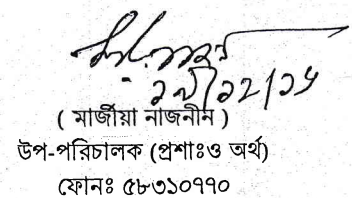 ( মার্জীয়া নাজনীন )
উপ-পরিচালক (প্রশাঃও অর্থ)
ফোনঃ ৫৮৩১০৭৭০